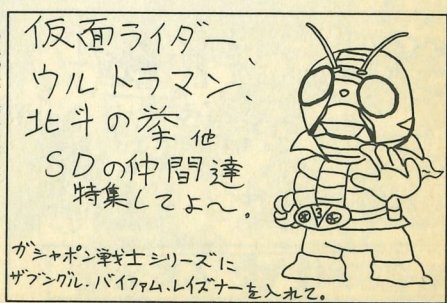 仮面ライダー、
ウルトラマン、
北斗の拳他
SDの仲間達
特集してよ〜。
ガシャポン戦士シリーズに
ザブングル.バイファム.レイズナーを入れて。
V3